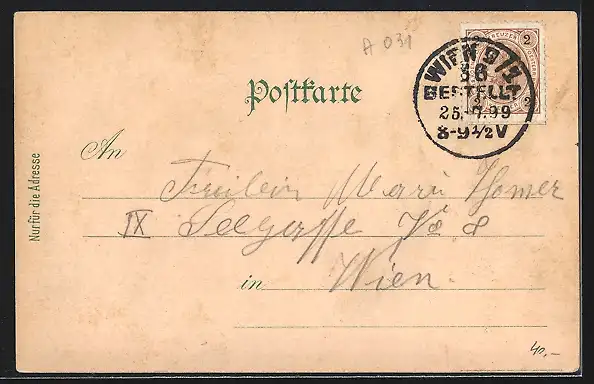 A 031
2 KREUZER 2
WIEN 9/3
36
BESTELLT
25. 7. 99
8-9½V
Postkarte
An
Fräulein Marie Homer
IX Seegasse No 8
in Wien.
Nur für die Adresse
40,-